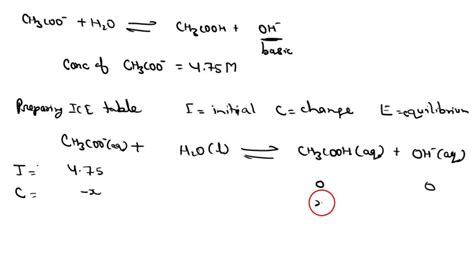 CH₃COO⁻ + H₂O ⇌ CH₃COOH + OH⁻
basic
Conc of CH₃COO⁻ = 4.75M
Preparing ICE table I = initial C = change E = equilibrium
CH₃COO⁻(aq) + H₂O(l) ⇌ CH₃COOH(aq) + OH⁻(aq)
I = 4.75 0 0
C = -x